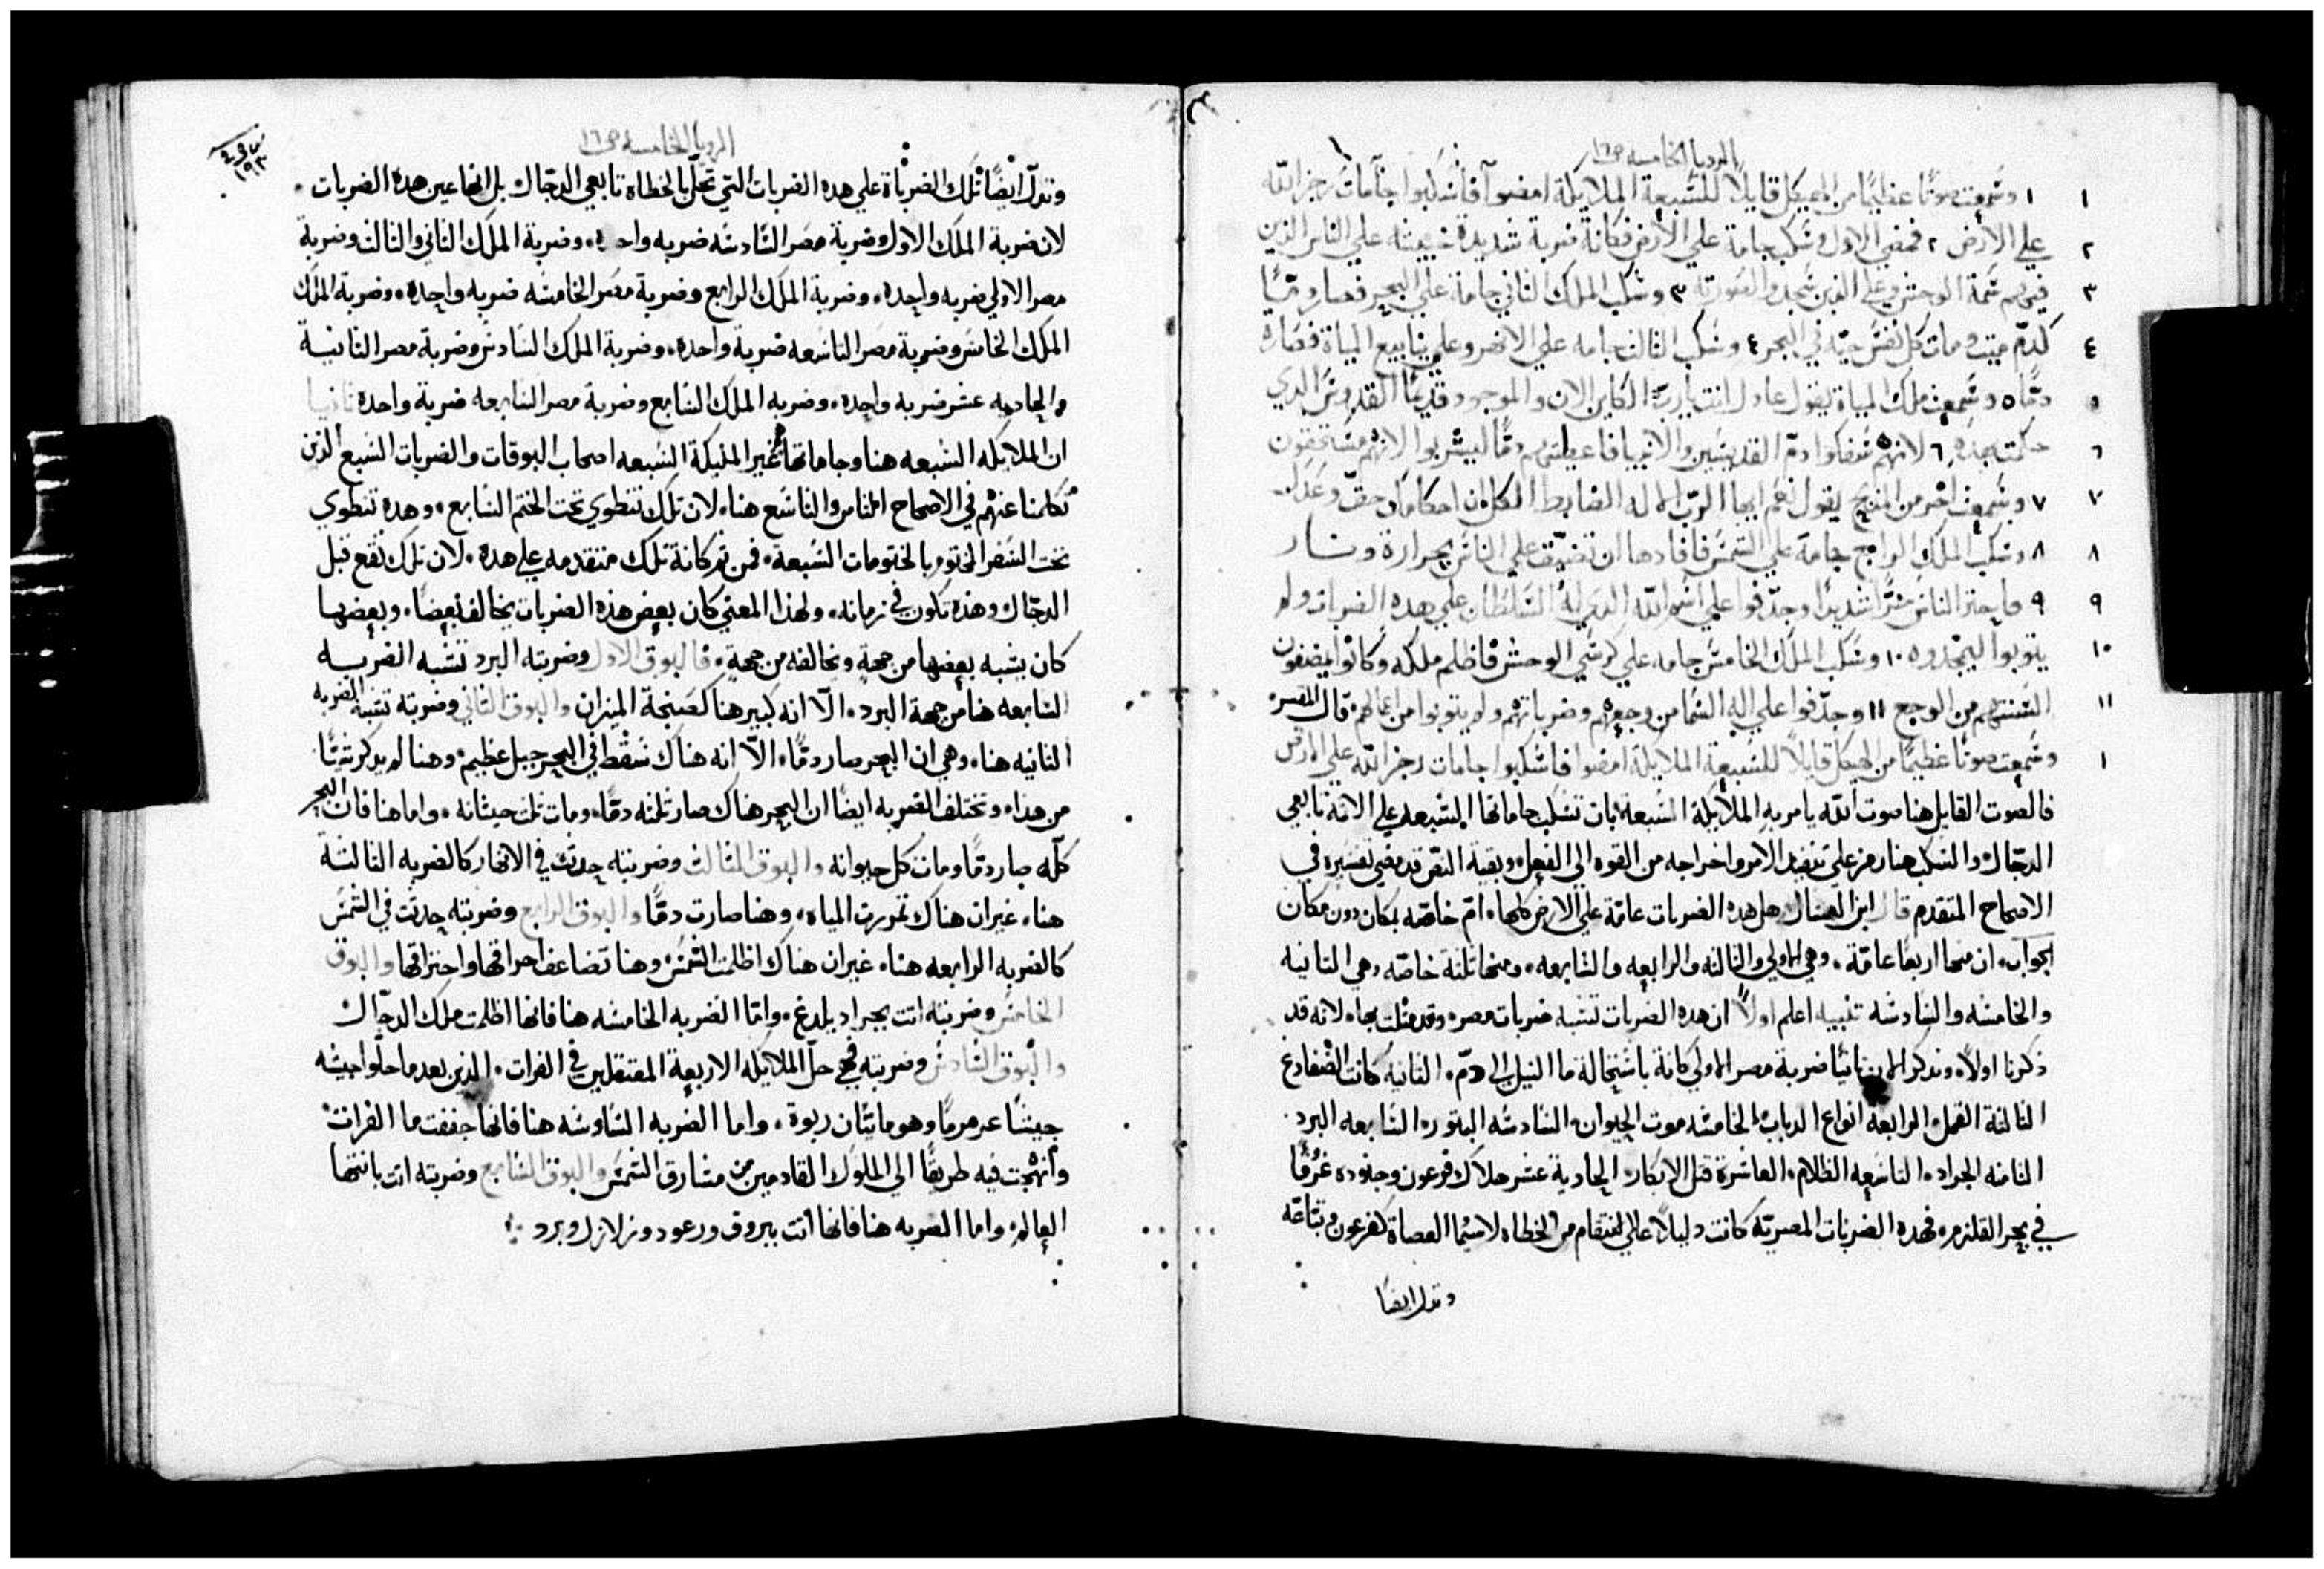 الرويا الخامسه ص١٦
١ ١ وسَمعت صوتًا عظيمًا من الهيكل قايلًا للسَبعة الملايكة امضوا فاسَكبوا جامات رجز الله
٢ علي الارض ٢ فمضي الاول وسَكب جامة علي الارض فكانة ضربة شديدة خبيثه علي الناس الذين
٣ فيهم سَمة الوحش وعلي الذين سَجدوا لصورته ٣ وسَكب الملك الثاني جامة علي البحر فصار دمًا
٤ كدمّ ميت ومات كل نفسَ حيّه في البحر ٤ وسَكب الثالث جامه علي الانهر وعلي ينابيع المياة فصاره
٥ دمًا ٥ وسَمعت ملك المياة يقول عادل انت يارب الكاين الان والموجود قديمًا القدوسَ الدي
٦ حكمت بهده ٦ لانهم سَفكوا دمّ القديسَين والانبيا فاعطيتهم دمًا ليشربوا لانهم مسَتحقون
٧ ٧ وسَمعت اخر من المذبح يقول نعم ايها الربّ الاله الضابط الكل ان احكامك حقّ وعدل
٨ ٨ وسَكب الملك الرابع جامة علي الشمسَ فافادها ان تضيّق علي الناسَ بحرارة ونار
٩ ٩ فاحتر الناسَ حرًّا شديدًا وجدّفوا علي اسَم الله الدي له السَلطان علي هده الضربات ولم
١٠ يتوبوا ليمجّدوه ١٠ وسَكب الملك الخامسَ جامه علي كرسَي الوحش فاظلم ملكه وكانوا يمضغون
١١ السَنتهم من الوجع ١١ وجدّفوا علي اله السَما من وجعهم وضرباتهم ولم يتوبوا من اعمالهم قال المفسر
١ وسَمعت صوتًا عظيمًا من الهيكل قايلًا للسَبعة الملايكة امضوا فاسَكبوا جامات رجز الله علي الارض
فالصوت القايل هنا صوت الله يامر به الملايكة السَبعة بان تسَكب جاماتها السَبعه علي الاثمة تابعي
الدجّال والسَكب هنا رمز علي تنفيد الامر واخراجه من القوه الي الفعل وبقية النصّ قد مضي تفسَيره في
الاصحاح المتقدم قال ابن العسال هل هده الضربات عامّة علي الارض كلها ام خاصّه بمكان دون مكان
الجواب ان منها اربعًا عامّة وهي الاولي والثالثه والرابعه والسَابعه ومنها ثلثة خاصّه وهي الثانية
والخامسَه والسَادسَه تنبيه اعلم اولًا ان هده الضربات تشبه ضربات مصر وقد مثلت بها لانه قد
ذكرنا اولًا وندكر الان ثانيًا ضربة مصر الاولي كانة باسَتحالة ما النيل الي دمّ الثانيه كانت الضفادع
الثالثة القمل الرابعة انواع الدباب الخامسَه موت الحيوان السَادسَه البثور السَابعه البرد
الثامنه الجراد التاسَعه الظلام العاشرة قتل الابكار الحادية عشر هلاك فرعون وجنوده غرقًا
في بحر القلزم فهده الضربات المصريّه كانت دليلًا علي الانتقام من الخطاه لاسَيما العصاة كفرعون وتبّاعه
وتدل ايضًا
الرويا الخامسه ص١٦
١٩٣
وتدلّ ايضًا تلك الضربأة علي هده الضربات التي تحلّ بالخطاة تابعي الدجّال بل انها عين هده الضربات
لان ضربة الملك الاول وضربة مصر السَادسَه ضربه واحده وضربة الملك الثاني والثالث وضربة
مصر الاولي ضربه واحده وضربة الملك الرابع وضربة مصر الخامسَه ضربه واحده وضربة الملك
الملك الخامسَ وضربة مصر التاسَعه ضربة واحده وضربة الملك السَادسَ وضربة مصر الثانية
والحاديه عشر ضربه واحده وضربه الملك السَابع وضربة مصر السَابعه ضربة واحدة ثانيا
ان الملايكه السَبعه هنا وجاماتها غير المليكة السَبعه اصحاب البوقات والضربات السَبع الذين
تكلمنا عنهم في الاصحاح الثامن والتاسَع هنا لان تلك تنطوي تحت الختم السَابع وهده تنطوي
تحت السَفر المختوم بالختومات السَبعة فمن ثم كانة تلك متقدمه علي هده لان تلك تقع قبل
الدجّال وهذه تكون في زمانه ولهذا المعني كان بعض هذه الضربات يخالف بعضًا وبعضها
كان يشبه بعضها من جهة ويخالفه من جهةٍ فالبوق الاول وضربته البرد تشبه الضربه
السَابعه هنا من جهة البرد الّا انه كبير هنا كصنجة الميزان والبوق الثاني وضربته تشبه الضربه
الثانيه هنا وهي ان البحر صار دمًا الّا انه هناك سَقط في البحر جبل عظيم وهنا لم يدكر شيًّا
من هدا وتختلف الضربه ايضًا ان البحر هناك صار ثلثه دمًا ومات ثلث حيتانه واما هنا فان البحر
كلّه صار دمًا ومات كل حيوانه والبوق الثالث وضربته حدثت في الانهار كالضربه الثالثة
هنا غير ان هناك تمررت المياه وهنا صارت دمًا والبوق الرابع وضربته حدثت في الشمسَ
كالضربه الرابعه هنا غير ان هناك اظلمت الشمسَ وهنا تضاعف احراقها واحتراقها والبوق
الخامسَ وضربته اتت بجراد يلدغ وامّا الضربه الخامسَه هنا فانها اظلمت ملك الدجّال
والبوق السَادسَ وضربته فهي حلّ الملايكه الاربعة المعتقلين في الفرات الذين بعد ما حلّوا جيشه
جيشًا عرمرمًا وهو مايتان ربوة واما الضربه السَادسَه هنا فانها جففت ما الفرات
وانهجت فيه طريقًا الي الملوك القادمين من مشارق الشمسَ والبوق السَابع وضربته اتت بانتها
العالم واما الضربه هنا فانها اتت ببروق ورعود وزلازل وبرد